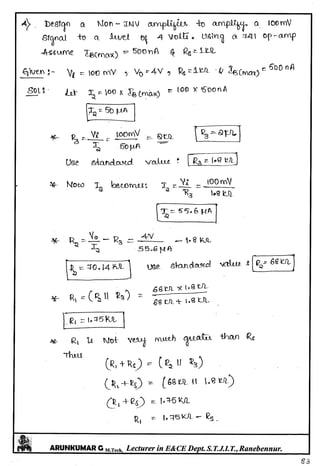 4. Design a Non-INV amplifier to amplify a 100mV
signal to a level of 4 Volts. Using a 741 op-amp
Assume IB(max) = 500nA & Rs = 1kΩ
Given :- Vi = 100 mV , Vo = 4V , Rs = 1kΩ & IB(max) = 500nA
Sol :- Let I2 = 100 x IB(max) = 100 x 500nA
I2 = 50 µA
* R3 = Vi / I2 = 100mV / 50µA = 2kΩ R3 = 2kΩ
Use standard value : R3 = 1.8 kΩ
* Now I2 becomes: I2 = Vi / R3 = 100mV / 1.8 kΩ
I2 = 55.6 µA
* R2 = Vo / I2 - R3 = 4V / 55.6 µA - 1.8 kΩ
R2 = 70.14 kΩ use standard value : R2 = 68kΩ
* R1 = (R2 || R3) = 68kΩ x 1.8 kΩ / 68 kΩ + 1.8 kΩ .
R1 = 1.75KΩ
* R1 is Not very much greater than Rs
Thus
(R1 + Rs) = (R2 || R3)
(R1 + Rs) = (68 kΩ || 1.8 kΩ)
(R1 + Rs) = 1.75 KΩ
R1 = 1.75KΩ - Rs .
ARUNKUMAR G M.Tech, Lecturer in E&CE Dept. S.T.J.I.T., Ranebennur.
83